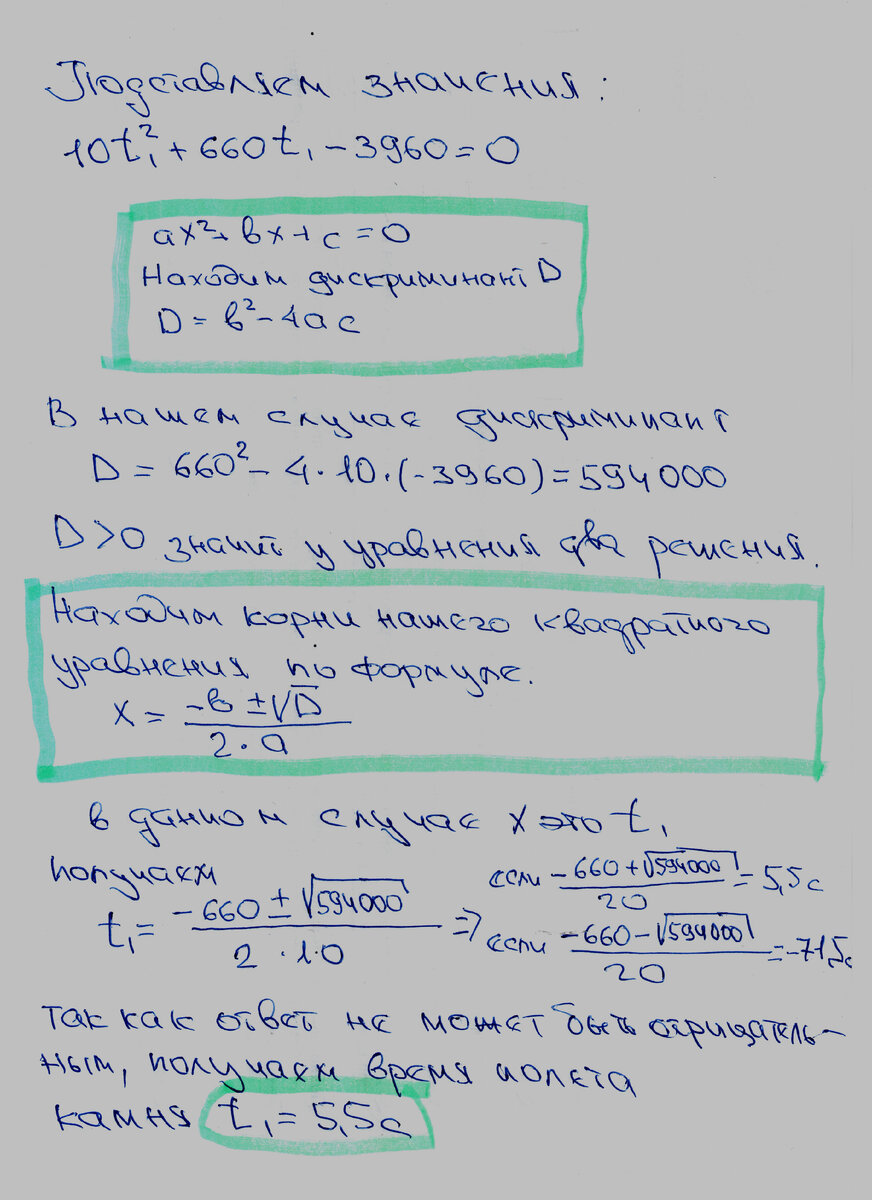 Подставляем значения:
10t₁² + 660t₁ - 3960 = 0
ax² + вx + c = 0
Находим дискриминант D
D = в² - 4ac
В нашем случае дискриминант
D = 660² - 4·10·(-3960) = 594000
D>0 значит у уравнения два решения.
Находим корни нашего квадратного
уравнения по формуле.
x = (-в ± √D) / (2·a)
в данном случае x это t₁
получаем
t₁ = (-660 ± √594000) / (2·10) =>
если (-660 + √594000) / 20 = 5,5с
если (-660 - √594000) / 20 = -71,5с
так как ответ не может быть отрицатель-
ным, получаем время полета
камня t₁ = 5,5с